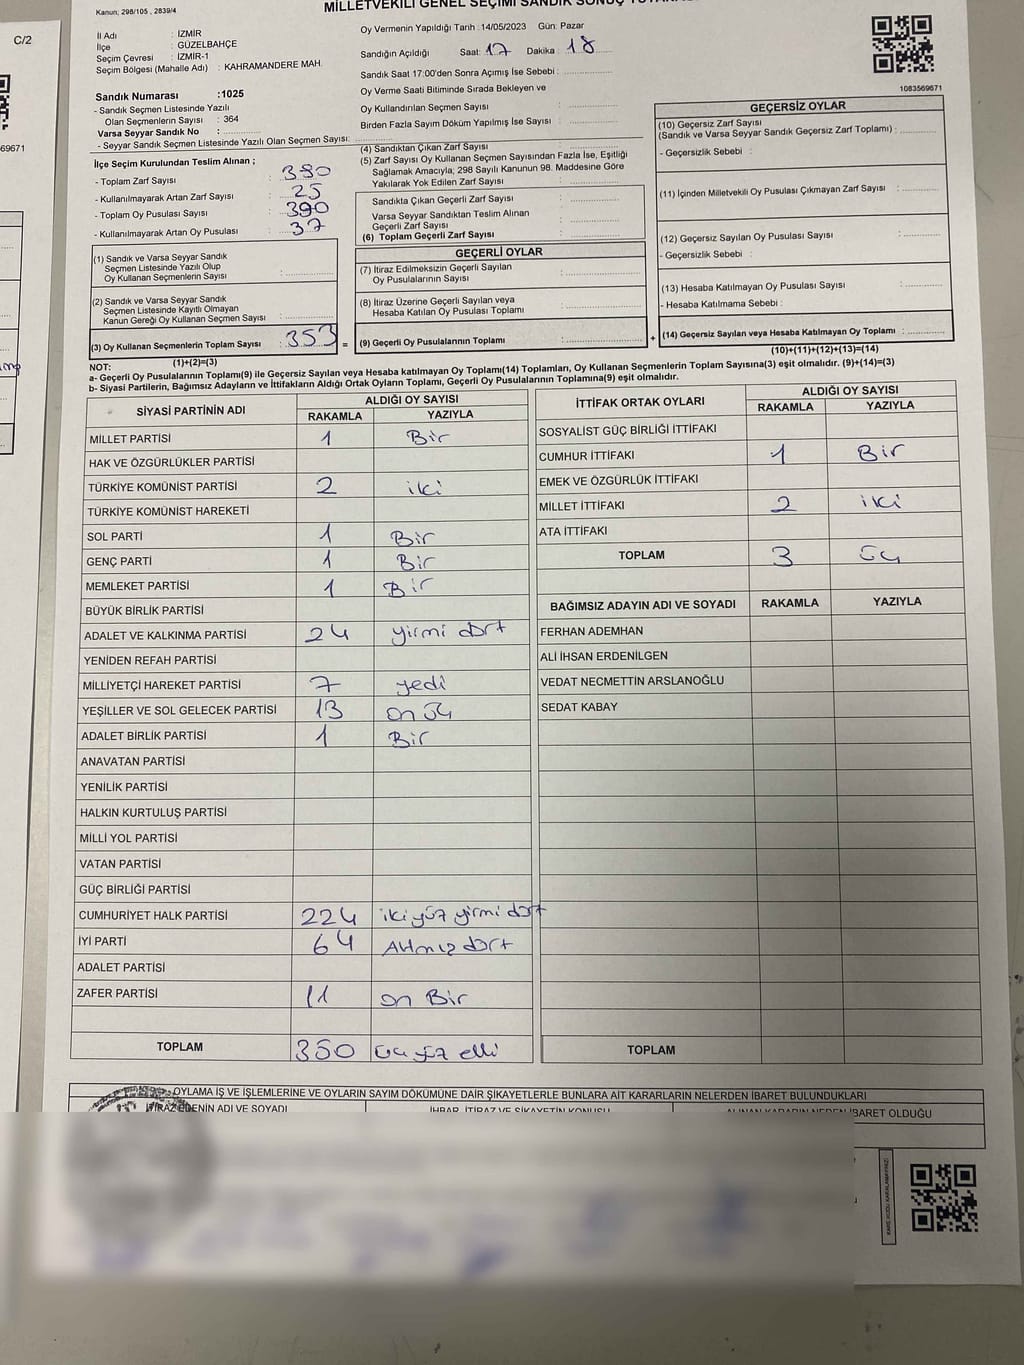 C/2
69671
Kanun; 298/105 , 2839/4
MİLLETVEKİLİ GENEL SEÇİMİ SANDIK SONUÇ
İl Adı : İZMİR
İlçe : GÜZELBAHÇE
Seçim Çevresi : İZMİR-1
Seçim Bölgesi (Mahalle Adı) : KAHRAMANDERE MAH.
Sandık Numarası :1025
- Sandık Seçmen Listesinde Yazılı
Olan Seçmenlerin Sayısı : 364
Varsa Seyyar Sandık No :
- Seyyar Sandık Seçmen Listesinde Yazılı Olan Seçmen Sayısı:
İlçe Seçim Kurulundan Teslim Alınan ;
- Toplam Zarf Sayısı : 380
- Kullanılmayarak Artan Zarf Sayısı : 25
- Toplam Oy Pusulası Sayısı : 390
- Kullanılmayarak Artan Oy Pusulası : 37
(1) Sandık ve Varsa Seyyar Sandık
Seçmen Listesinde Yazılı Olup
Oy Kullanan Seçmenlerin Sayısı :
(2) Sandık ve Varsa Seyyar Sandık
Seçmen Listesinde Kayıtlı Olmayan
Kanun Gereği Oy Kullanan Seçmen Sayısı :
(3) Oy Kullanan Seçmenlerin Toplam Sayısı : 353 =
(1)+(2)=(3)
Oy Vermenin Yapıldığı Tarih :14/05/2023 Gün: Pazar
Sandığın Açıldığı Saat: 17 Dakika : 18
Sandık Saat 17:00'den Sonra Açımış İse Sebebi :
Oy Verme Saati Bitiminde Sırada Bekleyen ve
Oy Kullandırılan Seçmen Sayısı :
Birden Fazla Sayım Döküm Yapılmış İse Sayısı :
(4) Sandıktan Çıkan Zarf Sayısı :
(5) Zarf Sayısı Oy Kullanan Seçmen Sayısından Fazla İse, Eşitliği
Sağlamak Amacıyla; 298 Sayılı Kanunun 98. Maddesine Göre
Yakılarak Yok Edilen Zarf Sayısı :
Sandıkta Çıkan Geçerli Zarf Sayısı :
Varsa Seyyar Sandıktan Teslim Alınan
Geçerli Zarf Sayısı :
(6) Toplam Geçerli Zarf Sayısı :
GEÇERLİ OYLAR
(7) İtiraz Edilmeksizin Geçerli Sayılan
Oy Pusulalarının Sayısı :
(8) İtiraz Üzerine Geçerli Sayılan veya
Hesaba Katılan Oy Pusulası Toplamı :
(9) Geçerli Oy Pusulalarının Toplamı : +
1083569671
GEÇERSİZ OYLAR
(10) Geçersiz Zarf Sayısı
(Sandık ve Varsa Seyyar Sandık Geçersiz Zarf Toplamı) :
- Geçersizlik Sebebi :
(11) İçinden Milletvekili Oy Pusulası Çıkmayan Zarf Sayısı :
(12) Geçersiz Sayılan Oy Pusulası Sayısı :
- Geçersizlik Sebebi :
(13) Hesaba Katılmayan Oy Pusulası Sayısı :
- Hesaba Katılmama Sebebi :
(14) Geçersiz Sayılan veya Hesaba Katılmayan Oy Toplamı :
(10)+(11)+(12)+(13)=(14)
NOT:
a- Geçerli Oy Pusulalarının Toplamı(9) ile Geçersiz Sayılan veya Hesaba katılmayan Oy Toplamı(14) Toplamları, Oy Kullanan Seçmenlerin Toplam Sayısına(3) eşit olmalıdır. (9)+(14)=(3)
b- Siyasi Partilerin, Bağımsız Adayların ve İttifakların Aldığı Ortak Oyların Toplamı, Geçerli Oy Pusulalarının Toplamına(9) eşit olmalıdır.
SİYASİ PARTİNİN ADI ALDIĞI OY SAYISI
RAKAMLA YAZIYLA
MİLLET PARTİSİ 1 Bir
HAK VE ÖZGÜRLÜKLER PARTİSİ
TÜRKİYE KOMÜNİST PARTİSİ 2 iki
TÜRKİYE KOMÜNİST HAREKETİ
SOL PARTİ 1 Bir
GENÇ PARTİ 1 Bir
MEMLEKET PARTİSİ 1 Bir
BÜYÜK BİRLİK PARTİSİ
ADALET VE KALKINMA PARTİSİ 24 yirmi dört
YENİDEN REFAH PARTİSİ
MİLLİYETÇİ HAREKET PARTİSİ 7 yedi
YEŞİLLER VE SOL GELECEK PARTİSİ 13 on üç
ADALET BİRLİK PARTİSİ 1 Bir
ANAVATAN PARTİSİ
YENİLİK PARTİSİ
HALKIN KURTULUŞ PARTİSİ
MİLLİ YOL PARTİSİ
VATAN PARTİSİ
GÜÇ BİRLİĞİ PARTİSİ
CUMHURİYET HALK PARTİSİ 224 iki yüz yirmi dört
İYİ PARTİ 64 Altmış dört
ADALET PARTİSİ
ZAFER PARTİSİ 11 on Bir
TOPLAM 350 üç yüz elli
İTTİFAK ORTAK OYLARI ALDIĞI OY SAYISI
RAKAMLA YAZIYLA
SOSYALİST GÜÇ BİRLİĞİ İTTİFAKI
CUMHUR İTTİFAKI 1 Bir
EMEK VE ÖZGÜRLÜK İTTİFAKI
MİLLET İTTİFAKI 2 iki
ATA İTTİFAKI
TOPLAM 3 üç
BAĞIMSIZ ADAYIN ADI VE SOYADI RAKAMLA YAZIYLA
FERHAN ADEMHAN
ALİ İHSAN ERDENİLGEN
VEDAT NECMETTİN ARSLANOĞLU
SEDAT KABAY
TOPLAM
OYLAMA İŞ VE İŞLEMLERİNE VE OYLARIN SAYIM DÖKÜMÜNE DAİR ŞİKAYETLERLE BUNLARA AİT KARARLARIN NELERDEN İBARET BULUNDUKLARI
İTİRAZ EDENİN ADI VE SOYADI İHBAR, İTİRAZ VE ŞİKAYETİN KONUSU ALINAN KARARIN NEDEN İBARET OLDUĞU